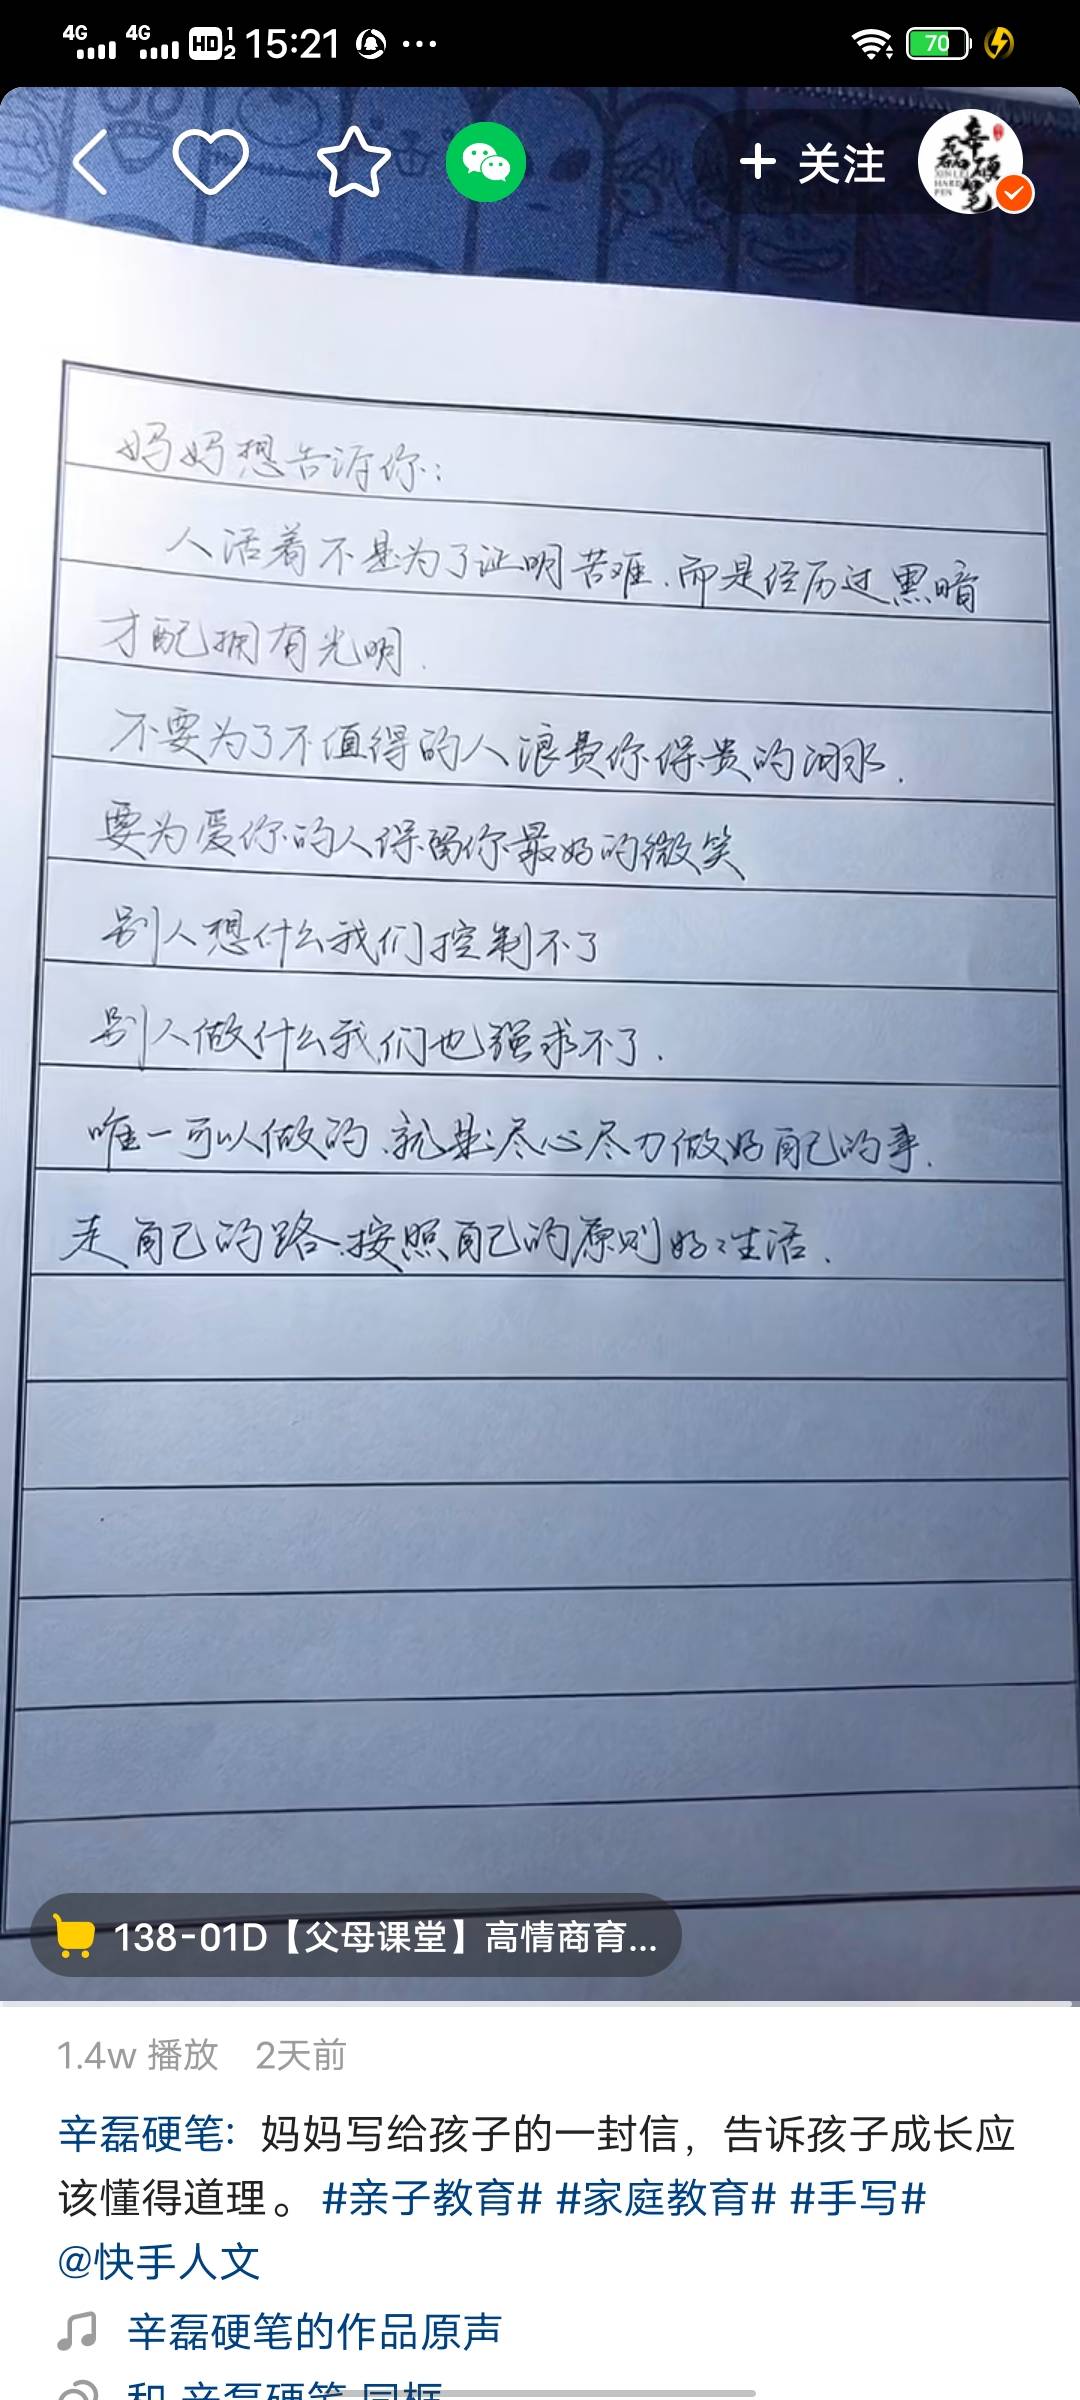 4G 4G HD 1 2 15:21 ...
70
+ 关注
辛磊硬笔
XINLEI
HARD
PEN
妈妈想告诉你:
人活着不是为了证明苦难.而是经历过黑暗
才配拥有光明.
不要为了不值得的人浪费你保贵的泪水.
要为爱你的人保留你最好的微笑
别人想什么我们控制不了
别人做什么我们也强求不了.
唯一可以做的.就是尽心尽力做好自己的事.
走自己的路.按照自己的原则好好生活.
138-01D【父母课堂】高情商育...
1.4w 播放 2天前
辛磊硬笔: 妈妈写给孩子的一封信，告诉孩子成长应
该懂得道理。#亲子教育# #家庭教育# #手写#
@快手人文
辛磊硬笔的作品原声
和 辛磊硬笔 同框